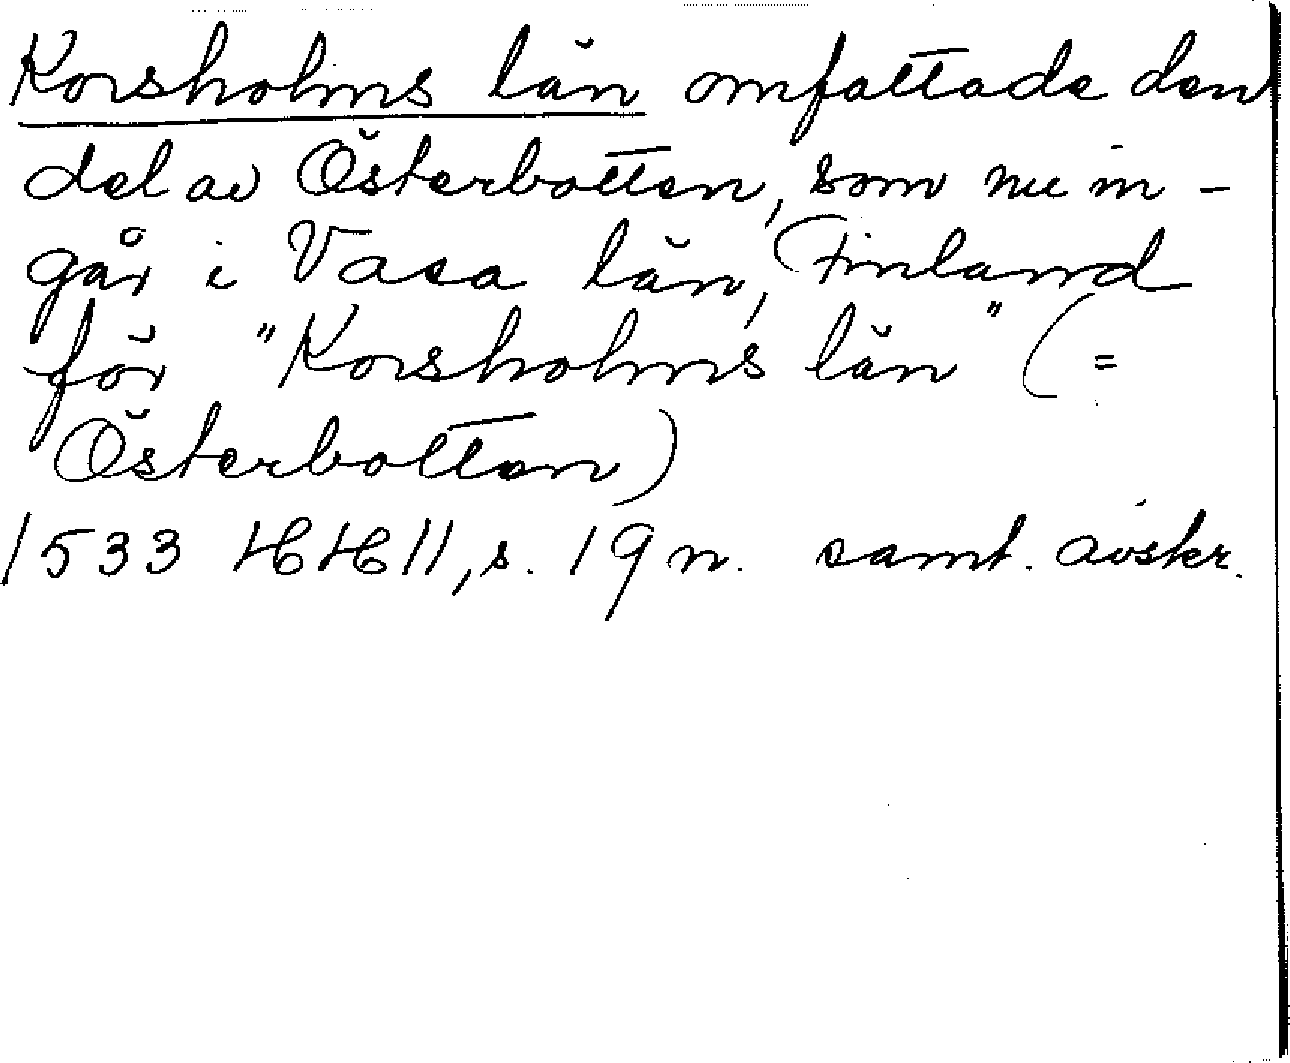 Korsholms län omfattade den
del av Österbotten, som nu in-
går i Vasa län, Finland
för "Korsholms län" (=
Österbotten)
1533 HH II, s. 19 n. samt. avskr.